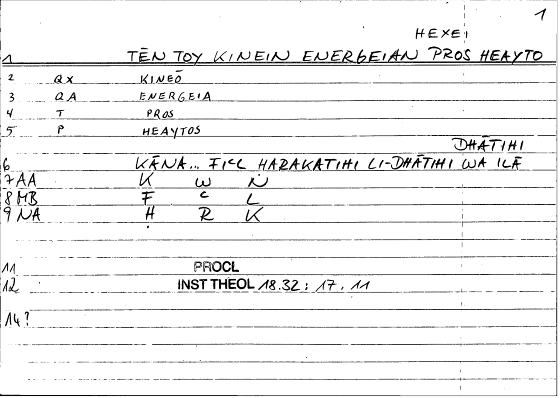 1
HEXEI
1 TĒN TOY KINEIN ENERGEIAN PROS HEAYTO
2 QX KINEŌ
3 QA ENERGEIA
4 T PROS
5 P HEAYTOS
DHĀTIHI
6 KĀNA... FIcL ḤARAKATIHI LI-DHĀTIHI WA ILĀ
7 AA K W N
8 MB F c L
9 NA Ḥ R K
11 PROCL
12 INST THEOL 18.32 : 17.11
14?